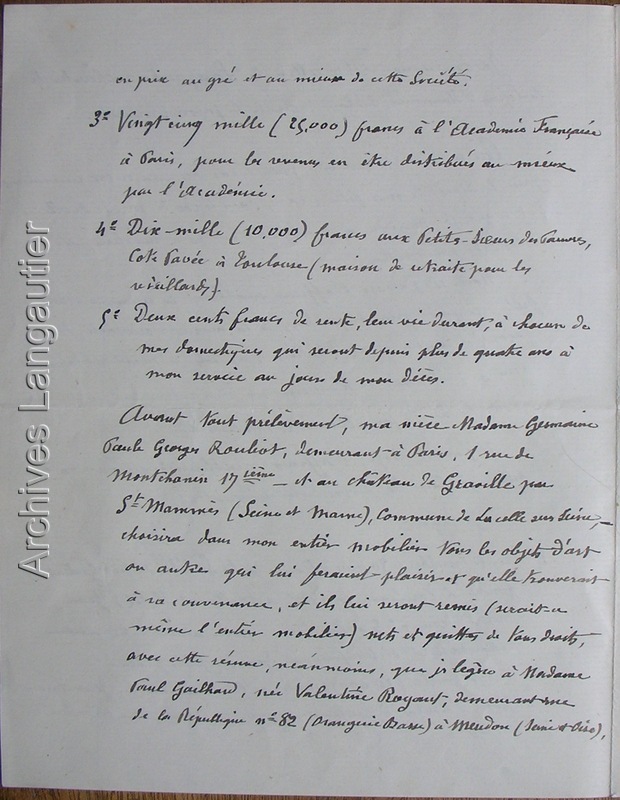 en prix au gré et au mieux de cette Société.
3° Vingt cinq mille (25,000) francs à l'Academie Française
à Paris, pour les revenus en être distribués au mieux
par l'Académie.
4° Dix-mille (10,000) francs aux Petites-Soeurs des Pauvres,
Cote Pavée à Toulouse (maison de retraite pour les
vieillards).
5° Deux cents francs de rente, leur vie durant, à chacun de
mes domestiques qui seront depuis plus de quatre ans à
mon service au jour de mon décès.
Avant tout prélèvement, ma nièce Madame Germaine
Paule Georges Rouliot, demeurant à Paris, 1 rue de
Montchanin 17 ième – et au château de Graville par
St Mammès (Seine et Marne), Commune de La celle sur Seine, –
choisira dans mon entier mobilier tous les objets d'art
ou autre qui lui feraient plaisir et qu'elle trouverait
à sa convenance, et ils lui seront remis (serait-ce
même l'entier mobilier) nets et quittes de tous droits,
avec cette réserve, néanmoins, que je lègue à Madame
Paul Gailhard, née Valentine Royant, demeurant rue
de la République n° 82 (Orangerie Basse) à Meudon (Seine et Oise),
Archives Langautier